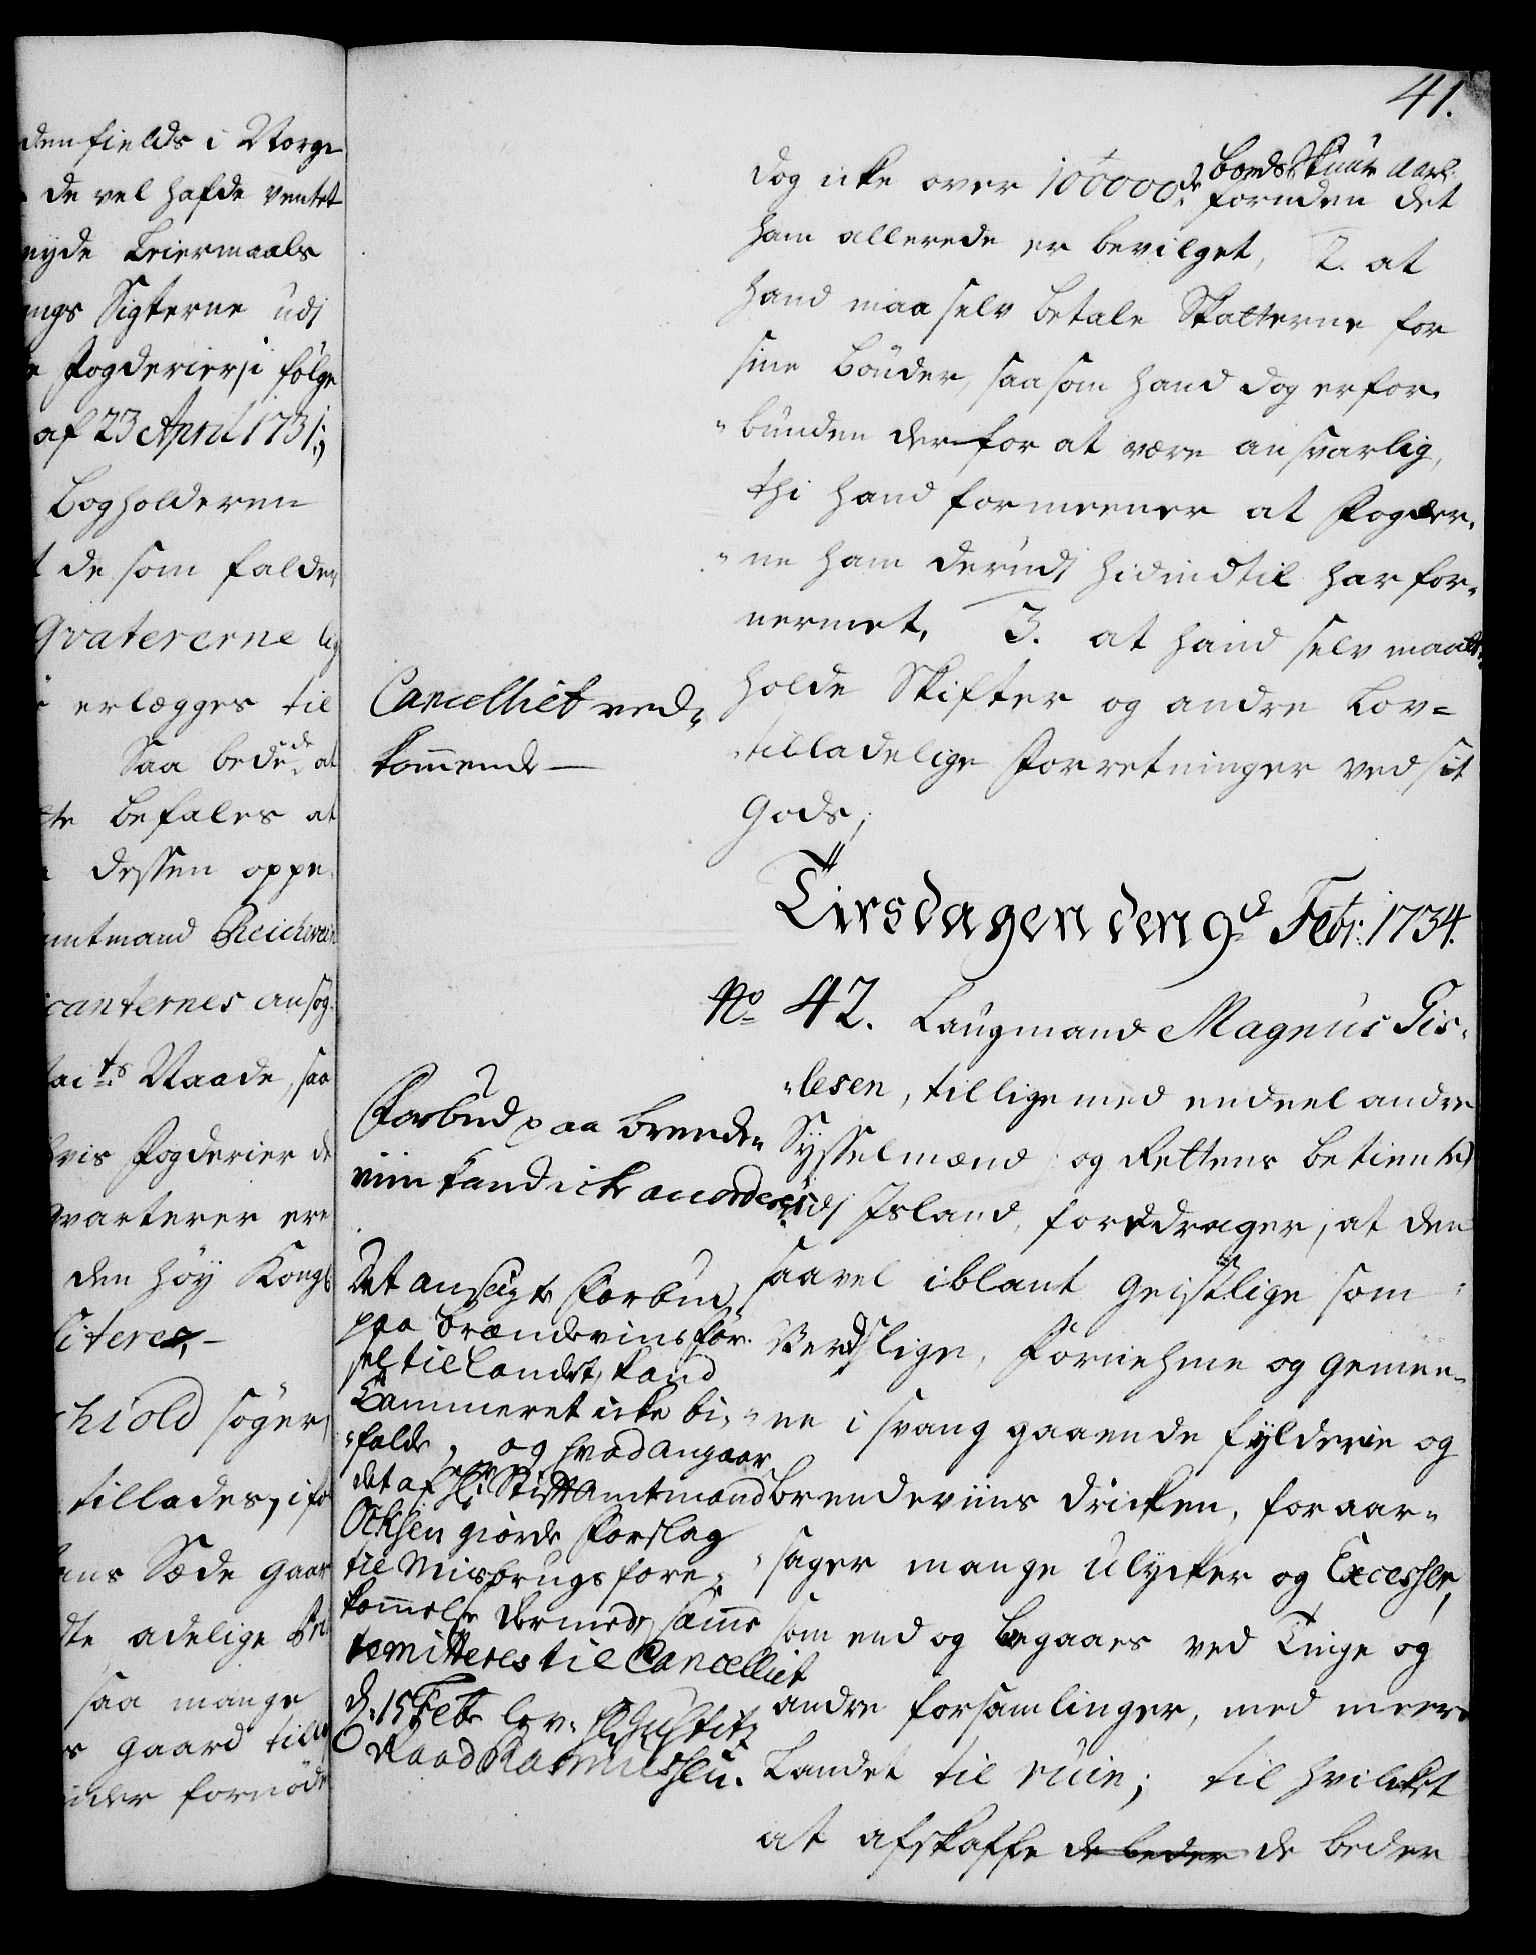 41.
denfields i Norge
de vel hafde ventet
nyde Leiermaals
ngs Sigterne udj
Fogderier i følge
af 23 April 1731;
Bogholderen
de som falder
Qvatererne
erlægges til
Saa bede de at
befales at
dessen oppe
amtmand Reichwein
canternes ansøg
Raade, saa
hvis Fogderier de
qvarterer ere
den høy Kongl
literes,
hiold søger
tillades, i fo
ans Sæde gaar
adelige
saa mange
gaard till
fornøde
dog icke over 100000 d. bord Skuur aarl.
foruden det
ham allerede er bevilget, 2. at
hand maa selv betale Skatterne for
sine Bönder, saasom hand dog er for-
bunden derfor at være ansvarlig,
thi hand formeener at Fogder-
ne ham derudj hidindtil har for-
nermet, 3. at hand selv maatte
holde Skifter og andre Lov-
tilladelige Forretninger ved sit
Gods;
Cancelliet ved-
kommende
Tirsdagen den 9d Febr: 1734.
No 42. Laugmand Magnus Gis-
lesen, tillige med endeel andre
Sysselmænd og Rettens betiente
udj Island, fordrager, at den
saavel iblant geistlige som
Verdslige, Fornehme og gemee-
ne i svang gaaende fylderie og
brendeviins dricken, foraar-
sager mange Ulycker og Excesser,
som end og begaaes ved Tinge og
andre forsamlinger, med meere
Landet til ruin; til hvilcket
at afskaffe de beder de beder
Forbud paa brende-
viin kand icke accorderes
Det ansøgte Forbud
paa Brændeviins før-
sel til Landet, kand
Cammeret icke bi-
falde, og hvad angaar
det af Hr Stiftamtmand
Ochsen giorde Forslag
til Misbrugs fore-
kommelse dermed, samme
remitteres til Cancelliet
d: 15 Febr lev: Hr Justitz
Raad Rasmussen.